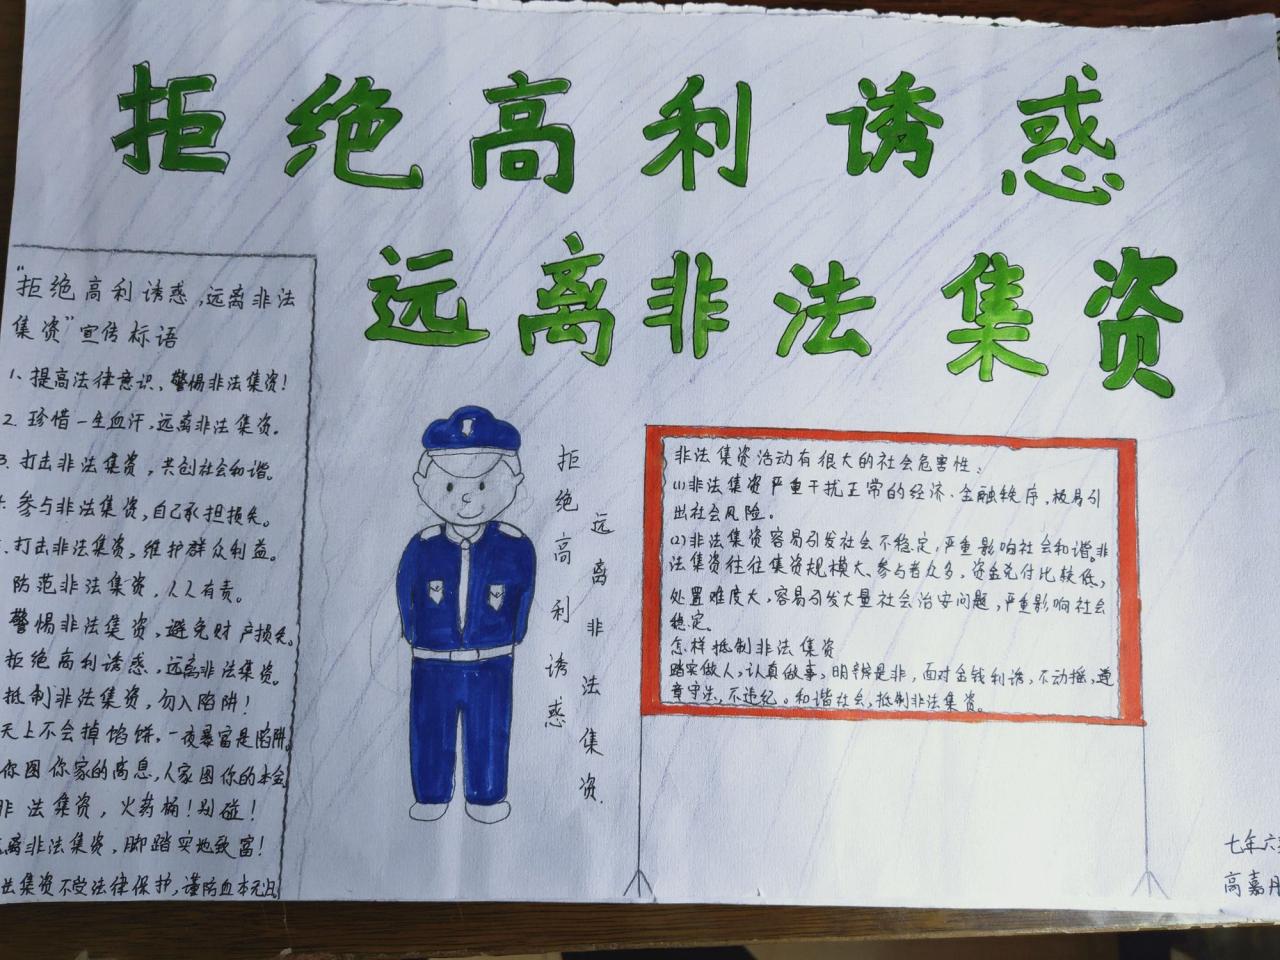 拒绝高利诱惑
远离非法集资
"拒绝高利诱惑,远离非法
集资"宣传标语
1、提高法律意识、警惕非法集资!
2. 珍惜一生血汗,远离非法集资.
3. 打击非法集资,共创社会和谐。
参与非法集资,自己承担损失。
打击非法集资,维护群众利益。
防范非法集资,人人有责。
警惕非法集资,避免财产损失。
拒绝高利诱惑,远离非法集资。
抵制非法集资,勿入陷阱!
天上不会掉馅饼,一夜暴富是陷阱.
你图你家的高息,人家图你的本金
非法集资,火药桶!别碰!
离非法集资,脚踏实地致富!
法集资不受法律保护,谨防血本无归
拒绝高利诱惑
远离非法集资.
非法集资活动有很大的社会危害性:
(1)非法集资严重干扰正常的经济、金融秩序,极易引
出社会风险。
(2)非法集资容易引发社会不稳定,严重影响社会和谐。非
法集资往往集资规模大、参与者众多,资金兑付比较低,
处置难度大,容易引发大量社会治安问题,严重影响社会
稳定.
怎样抵制非法集资
踏实做人,认真做事,明辨是非,面对金钱利诱,不动摇,遵
章守法,不违纪。和谐社会,抵制非法集资。
七年六
高嘉